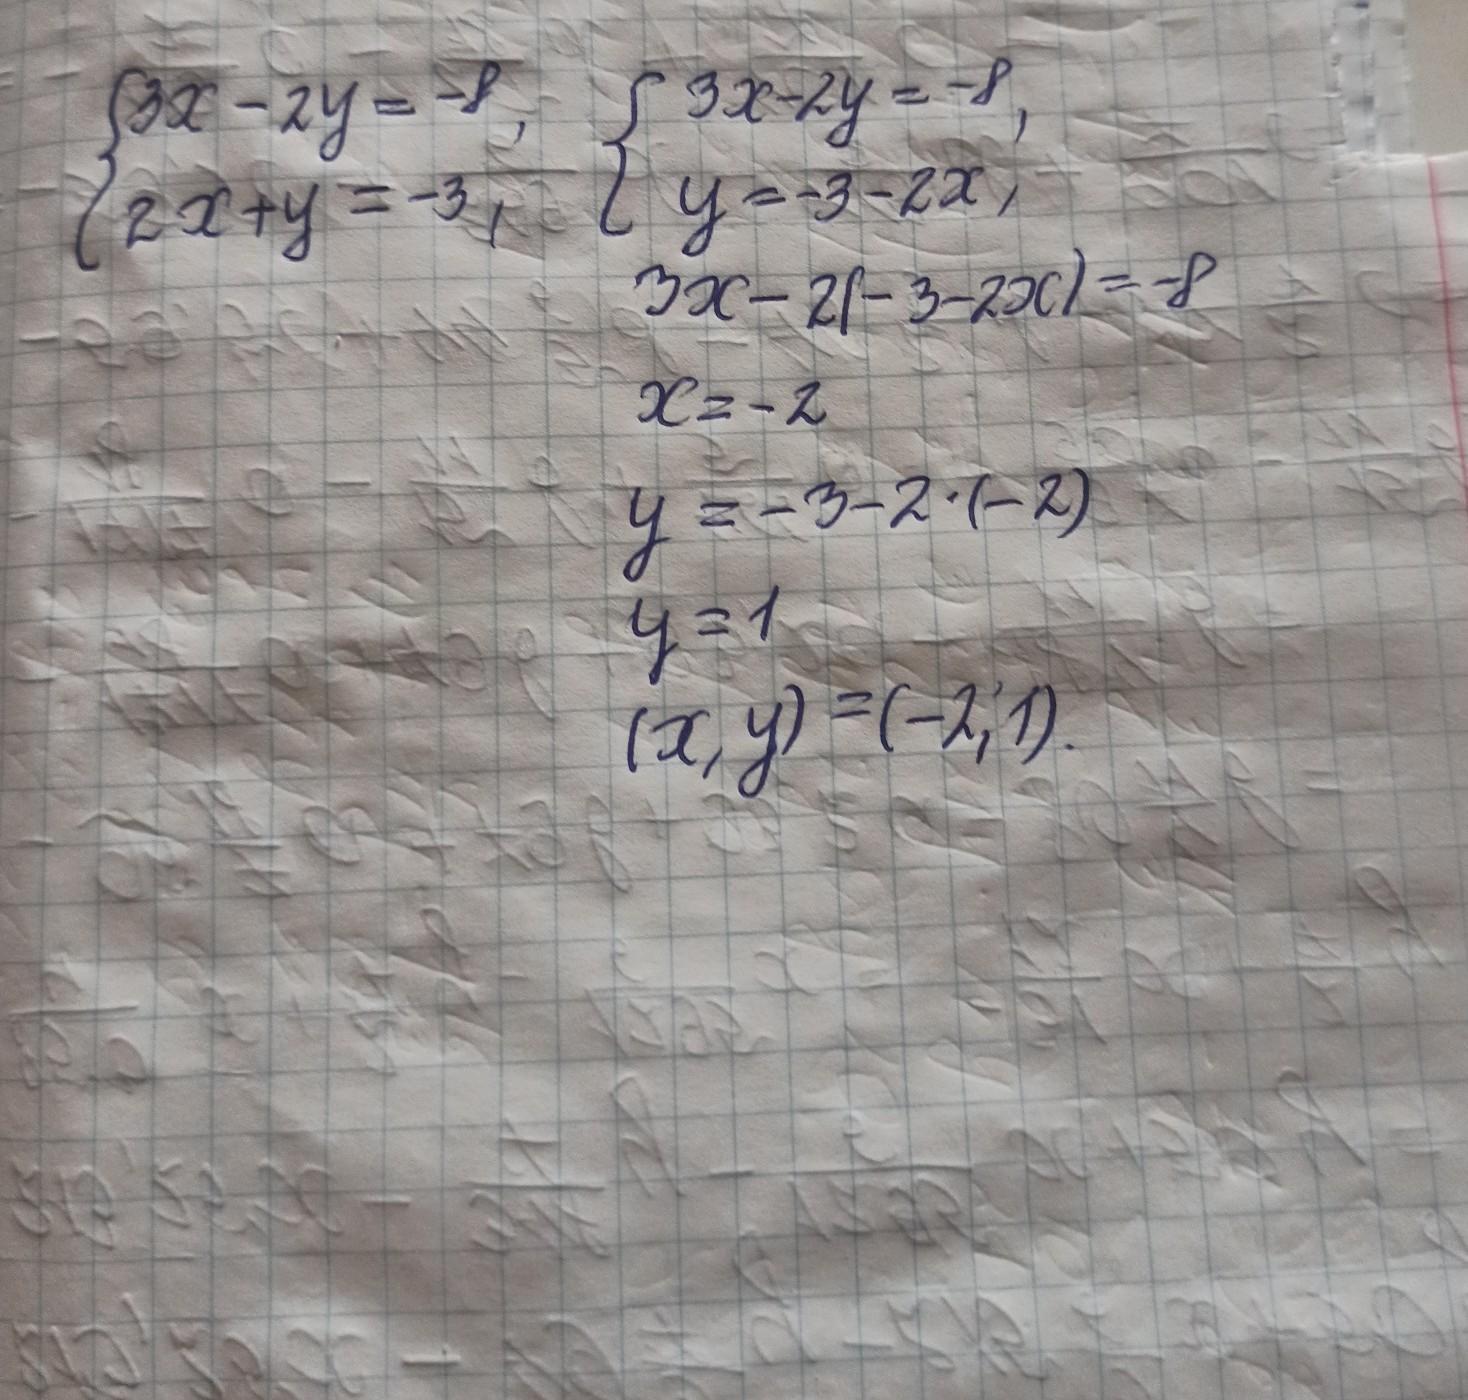 {3x-2y=-8, {3x-2y=-8,
2x+y=-3, y=-3-2x,
3x-2(-3-2x)=-8
x=-2
y=-3-2·(-2)
y=1
(x,y)=(-2;1).